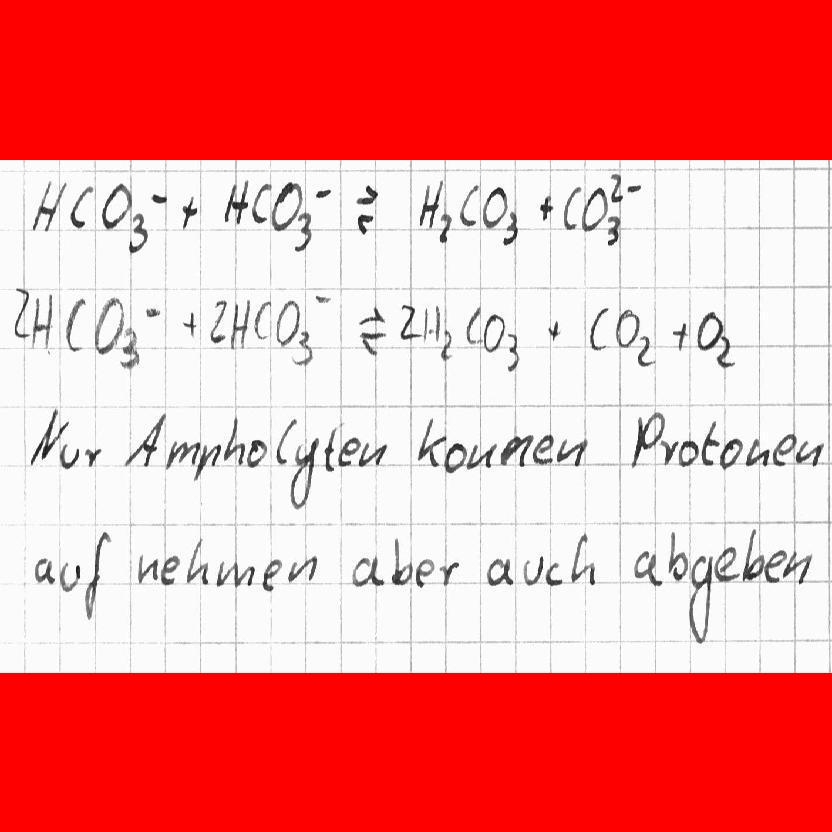 HCO₃⁻ + HCO₃⁻ ⇌ H₂CO₃ + CO₃²⁻
2HCO₃⁻ + 2HCO₃⁻ ⇌ 2H₂CO₃ + CO₂ + O₂
Nur Ampholyten konnen Protonen
auf nehmen aber auch abgeben